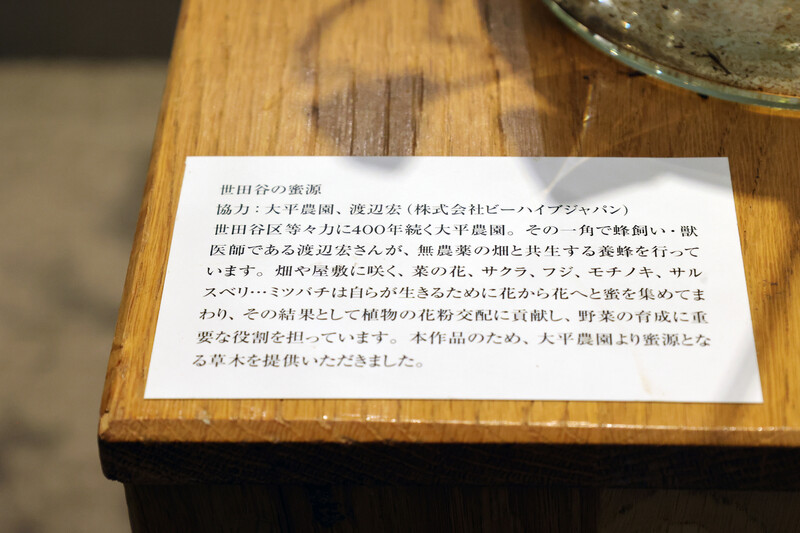 世田谷の蜜源
協力：大平農園、渡辺宏（株式会社ビーハイブジャパン）
世田谷区等々力に400年続く大平農園。その一角で蜂飼い・獣
医師である渡辺宏さんが、無農薬の畑と共生する養蜂を行って
います。畑や屋敷に咲く、菜の花、サクラ、フジ、モチノキ、サル
スベリ…ミツバチは自らが生きるために花から花へと蜜を集めてま
わり、その結果として植物の花粉交配に貢献し、野菜の育成に重
要な役割を担っています。本作品のため、大平農園より蜜源とな
る草木を提供いただきました。